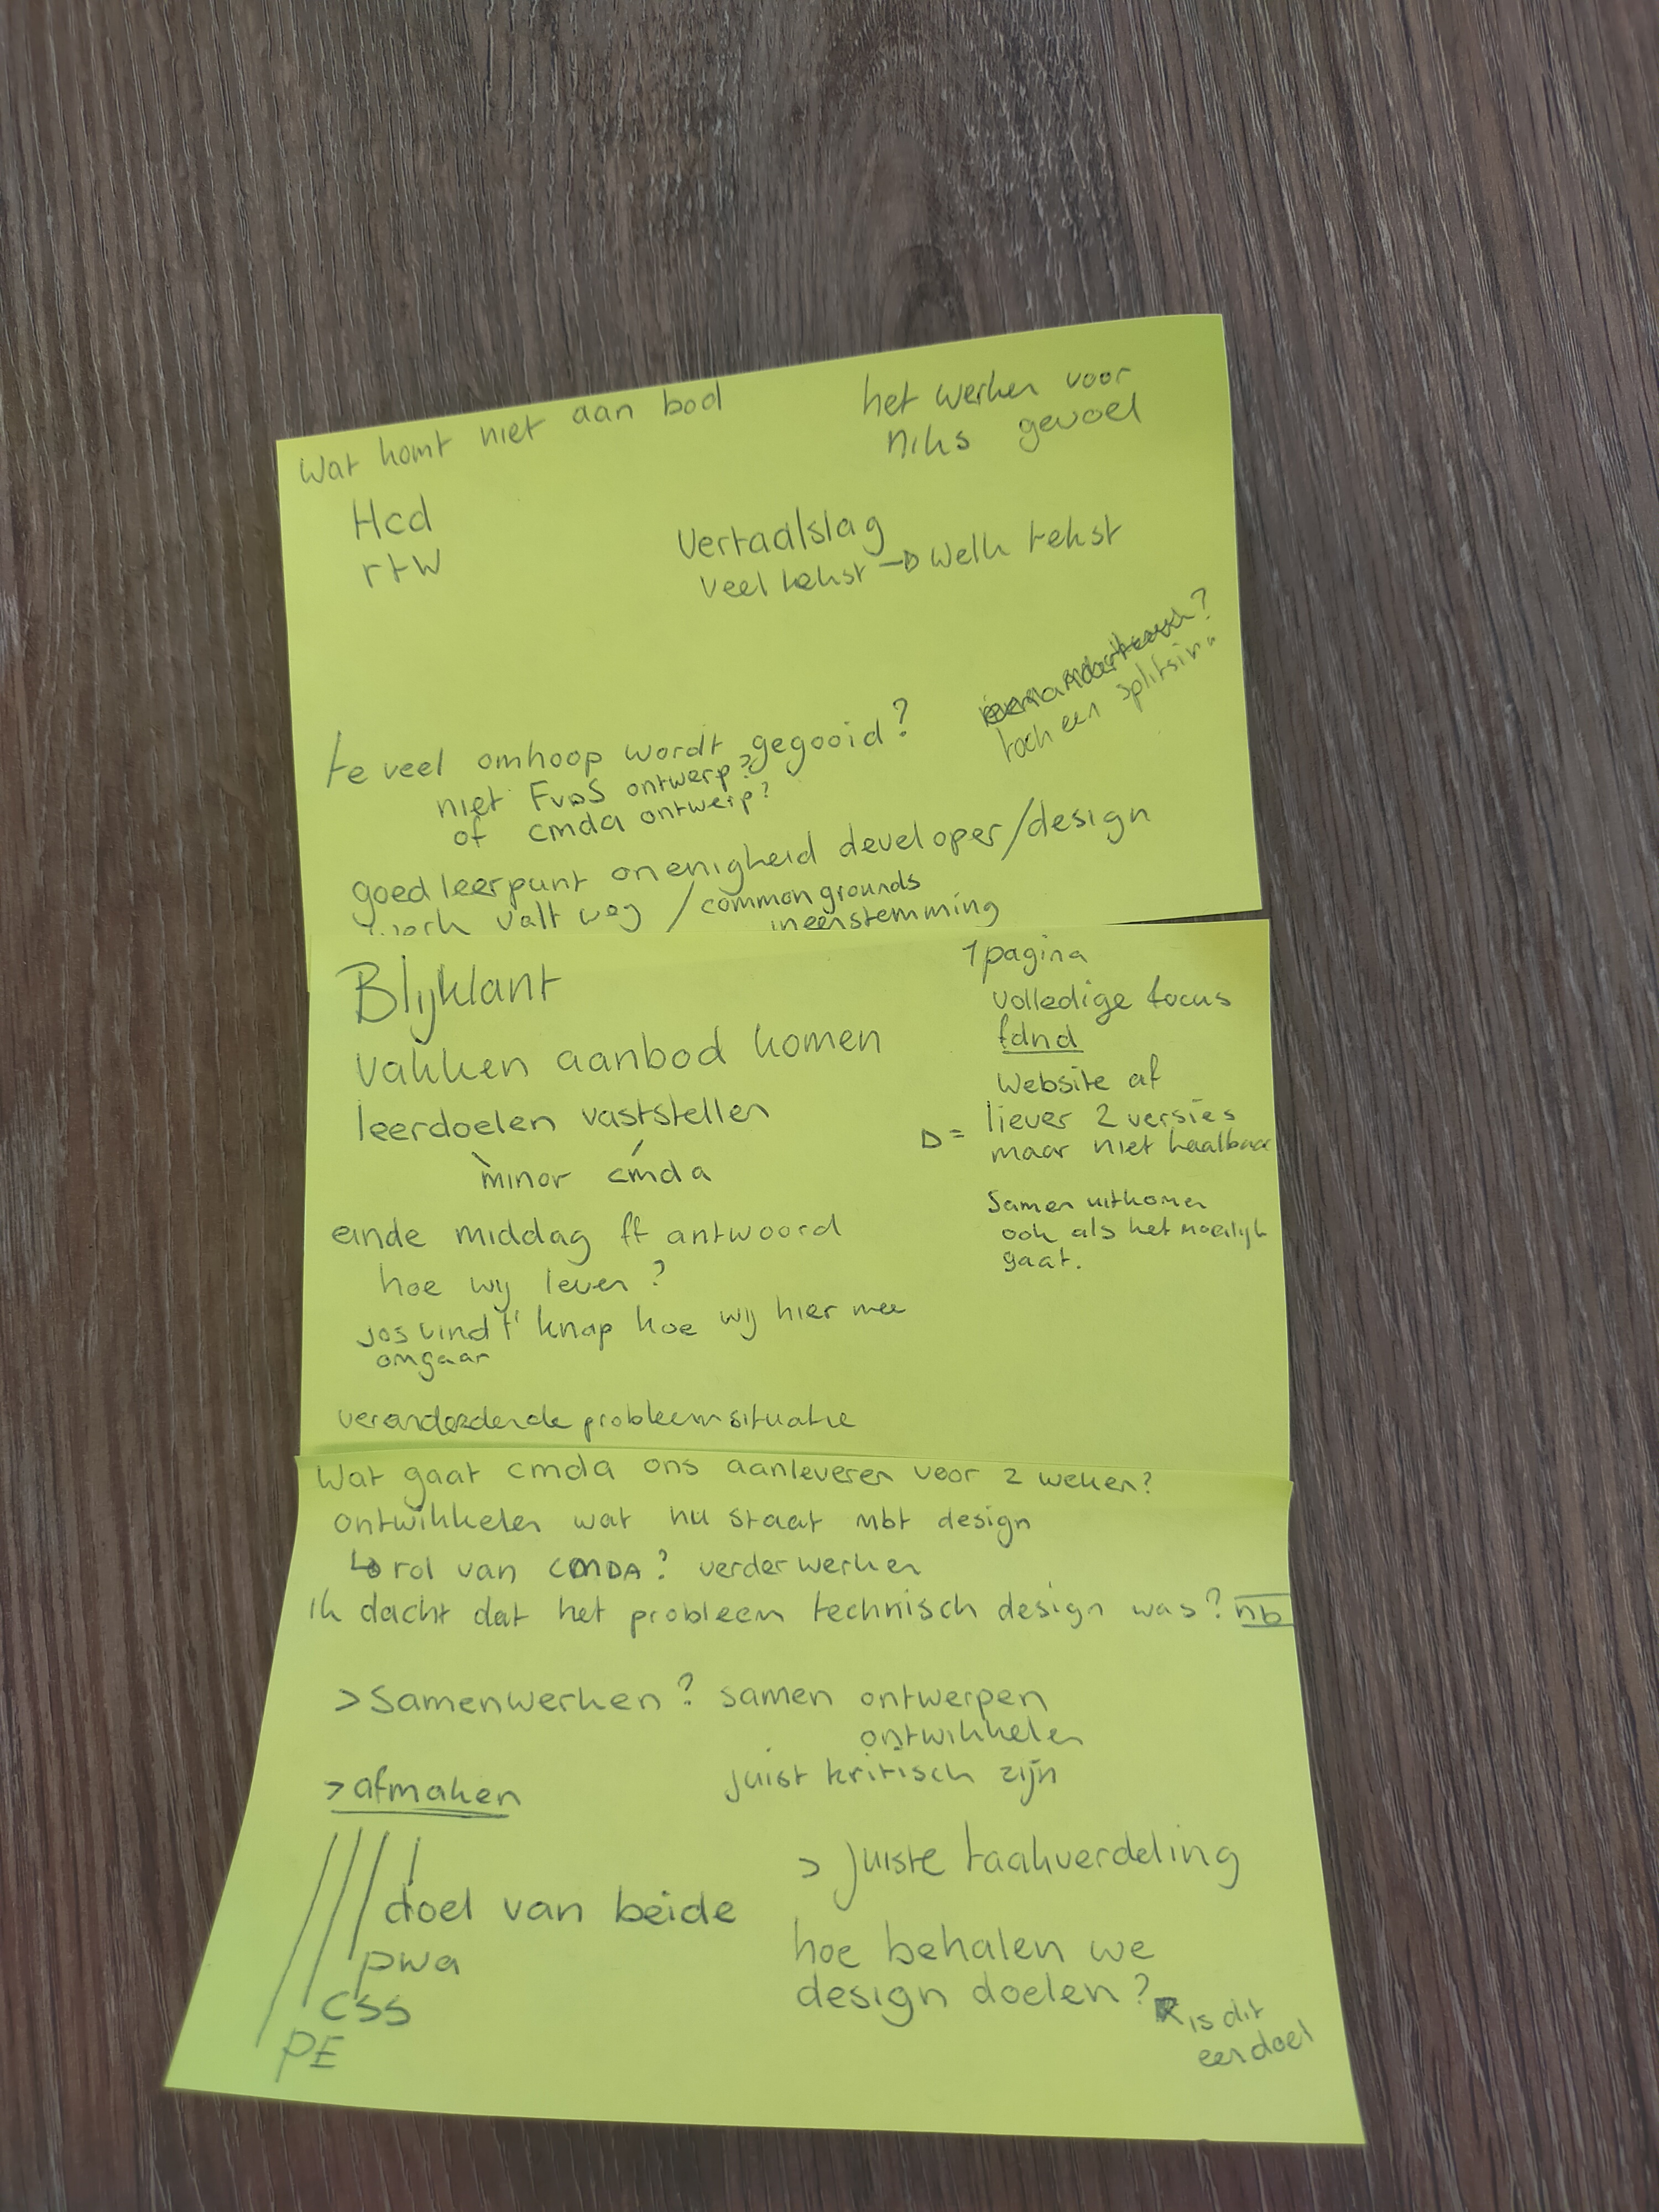 Wat komt niet aan bod
het werken voor
niks gevoel
Hcd
rtw
Vertaalslag
veel tekst → welk tekst
toch een splitsing
te veel omhoop wordt gegooid?
niet FvDS ontwerp?
of cmda ontwerp?
goed leerpunt onenigheid developer/design
valt weg / common grounds
ineenstemming
Blijklant
vakken aanbod komen
leerdoelen vaststellen
minor cmda
einde middag ff antwoord
hoe wij leven?
jos vind t' knap hoe wij hier mee
omgaan
probleemsituatie
1 pagina
volledige focus
fdnd
website af
D= liever 2 versies
maar niet haalbaar
Samen uitkomen
ook als het moeilijk
gaat.
Wat gaat cmda ons aanleveren voor 2 weken?
ontwikkelen wat nu staat mbt design
↳ rol van CMDA? verder werken
Ik dacht dat het probleem technisch design was? nb
> Samenwerken? samen ontwerpen
ontwikkelen
juist kritisch zijn
> afmaken
doel van beide
pwa
CSS
PE
> juiste taakverdeling
hoe behalen we
design doelen?
is dit
een doel